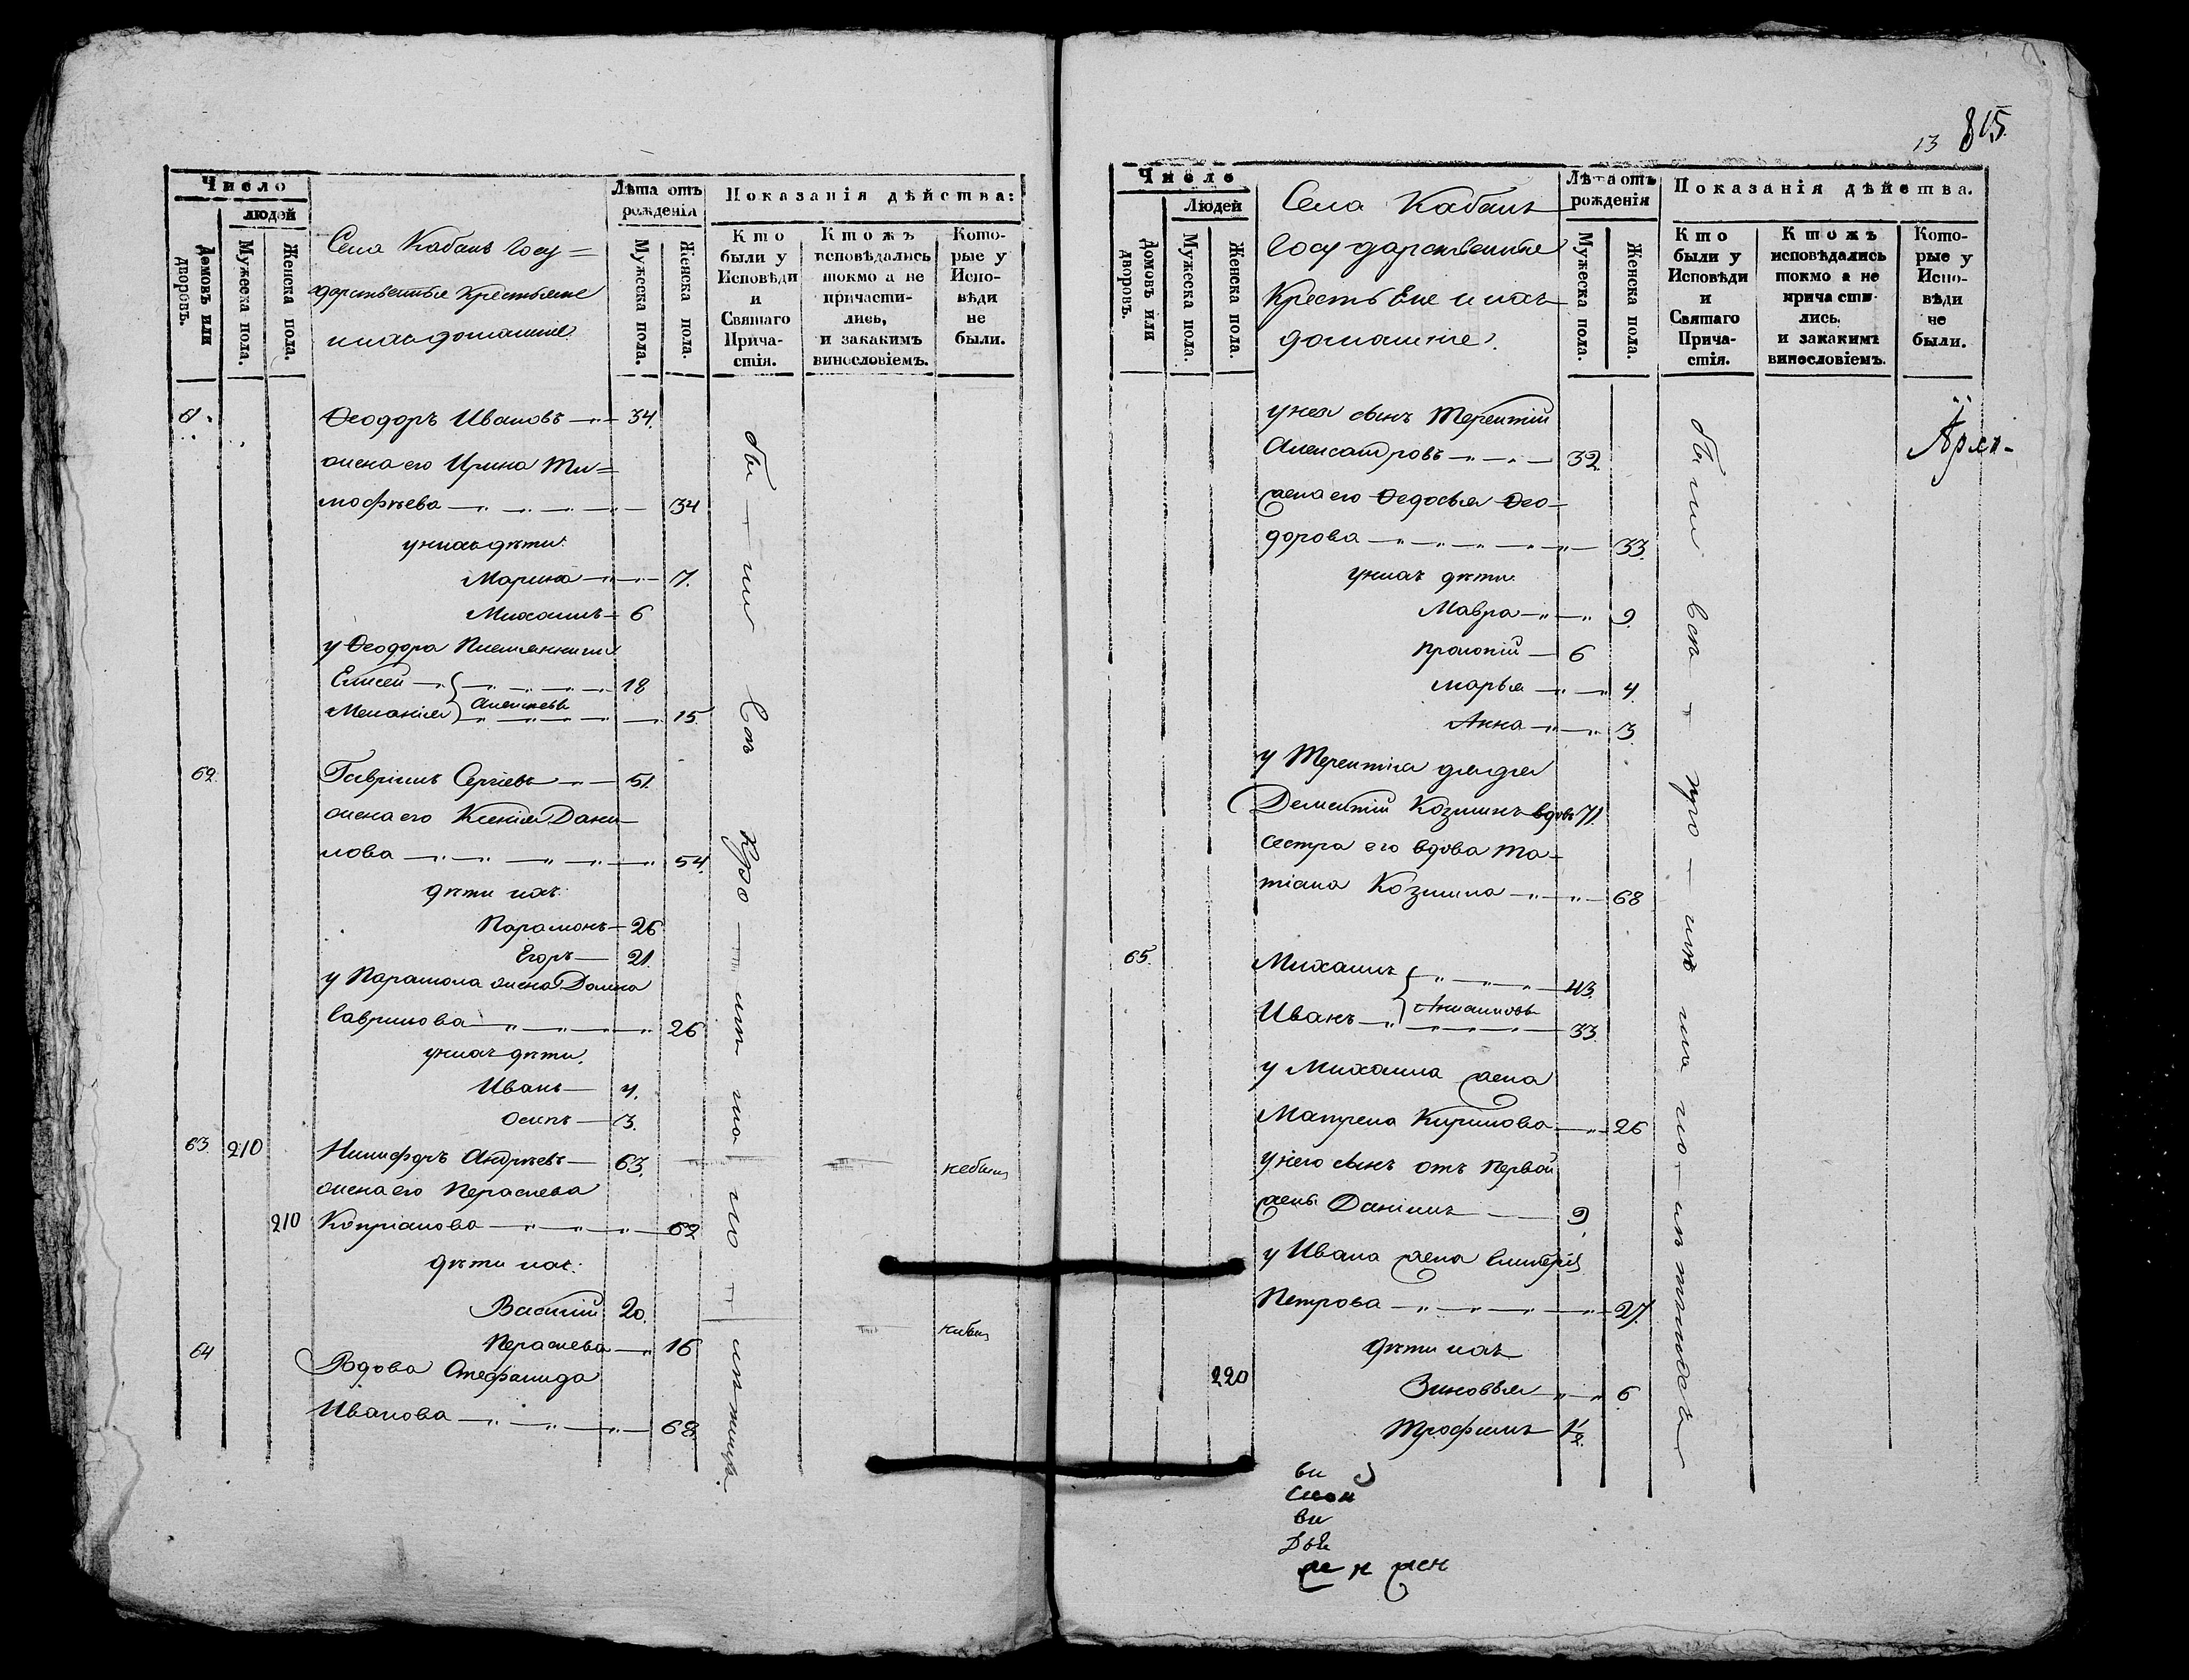 Число
людей
Домовъ или дворовъ.
Мужеска пола.
Женска пола.
Села Кабанъ Госу=
дарственные Крестьяне
и ихъ домашние.
Лѣта отъ
рожденія
Мужеска пола.
Женска пола.
Показанія дѣйства:
Кто
были у
Исповѣди
и
Святаго
Прича-
стія.
Ктожъ
исповѣдались
токмо а не
причасти-
лись,
и закакимъ
винословіемъ.
Кото-
рые у
Испо-
вѣди
не
были.
61. Ѳеодоръ Ивановъ 34.
жена его Ирина Ти=
мофѣева 34
у нихъ дѣти:
Марина 7.
Михаилъ 6
у Ѳеодора Племянники
Елисей 18
Меланія Алексѣевы 15.
62. Гавріилъ Сергіевъ 51.
жена его Ксенія Дани-
лова 54.
дѣти ихъ:
Парамонъ 26
Егоръ 21.
у Парамона жена Домна
Гаврилова 26
у нихъ дѣти.
Иванъ 4.
Осипъ 3.
63. 210 Никифоръ Андрѣевъ 63. небылъ
жена его Пераскева
210 Купріанова 62
дѣти ихъ:
Василій 20.
Пераскева 16
64 Вдова Стефанида
Иванова 68.
бы-ли всѣ
13 815.
Число
Людей
Домовъ или дворовъ.
Мужеска пола.
Женска пола.
Села Кабанъ
Государственные
Крестьяне и ихъ
домашние.
Лѣта отъ
рожденія
Мужеска пола.
Женска пола.
Показанія дѣйства.
Кто
были у
Исповѣди
и
Святаго
Прича-
стія.
Ктожъ
исповѣдались
токмо а не
причасти-
лись.
и закакимъ
винословіемъ.
Кото-
рые у
Испо-
вѣди
не
были.
у нея сынъ Терентій
Александровъ 32.
жена его Ѳедосья Ѳео-
дорова 33.
у нихъ дѣти:
Мавра 9.
Прокопій 6
Марья 4.
Анна 3.
у Терентія дядя
Дементій Козминъ вдовъ 71.
Сестра его вдова Та-
тіана Козмина 68
65. Михаилъ 43.
Иванъ 33.
у Михаила жена
Матрена Кирилова 26
у него сынъ отъ первой
жены Даніилъ 9
у Ивана жена Гликерія
Петрова 27.
дѣти ихъ
220 Зиновья 6
Трофимъ 1/2.
были всѣ